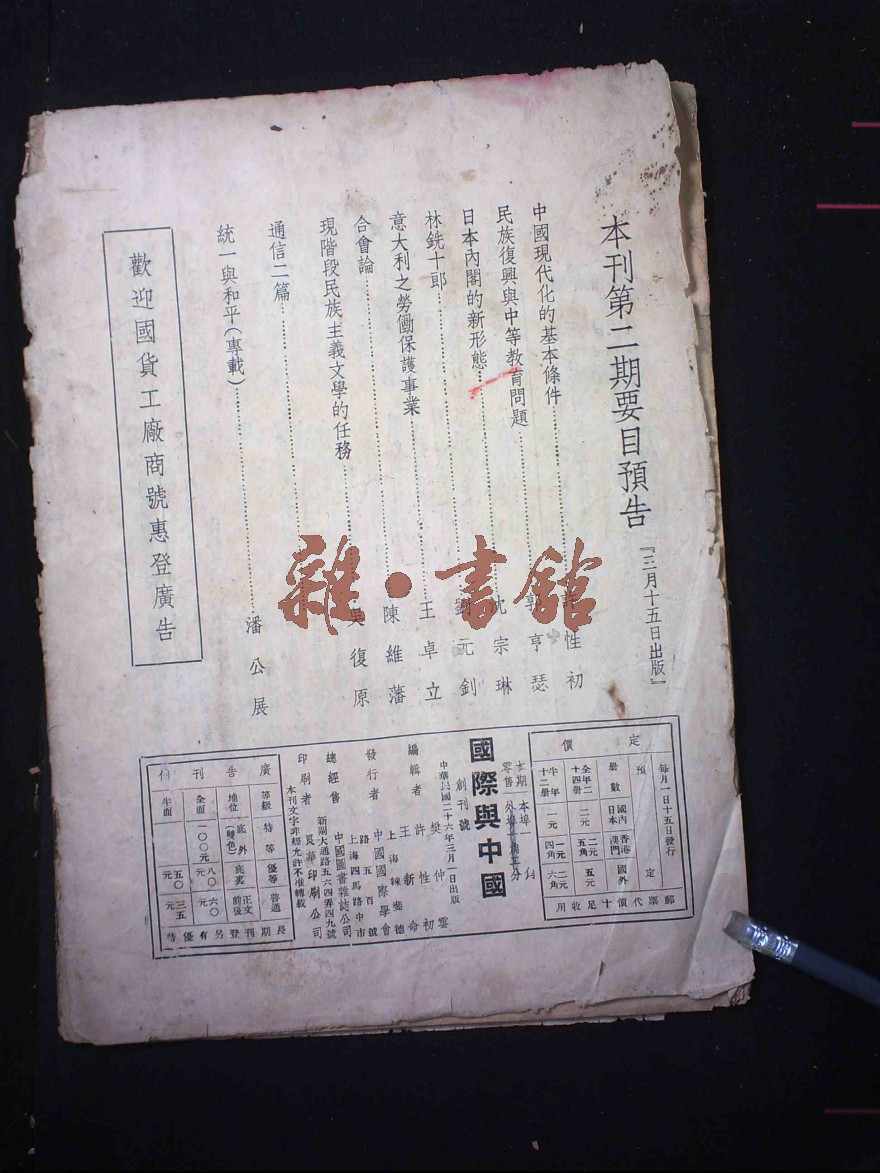 本刊第二期要目預告
『三月十五日出版』
中國現代化的基本條件 性初
民族復興與中等教育問題 郭亨瑟
日本內閣的新形態 沈宗琳
林銑十郎 劉元釗
意大利之勞働保護事業 王卓立
合會論 陳維藩
現階段民族主義文學的任務 吳復原
通信二篇
統一與和平(專載) 潘公展
歡迎國貨工廠商號惠登廣告
雜·書館
定價
每月一日十五日發行
預定
冊數 國內日本 香港澳門 國外
全年二十四冊 二元 二元五角 五元
半年十二冊 一元 一元四角 二元六角
郵票代價十足收用
本期零售 本埠一角 外埠
國際與中國
創刊號
中華民國二十六年三月一日出版
編輯者 樊仲雲 許性初 王新命
發行者 中國國際學會
上海辣斐德路五百號
總經售 中國圖書雜誌公司
上海四馬路中市
印刷者 長華印刷公司
新閘大通路五六四弄四九號
本刊文字非經允許不准轉載
廣告刊例
等級 特等 優等 普通
地位 底外(雙色) 底裏 正文前後
全面 一〇〇元 八〇元 六〇元
半面 五〇元 三五元
長期刊登另有優待